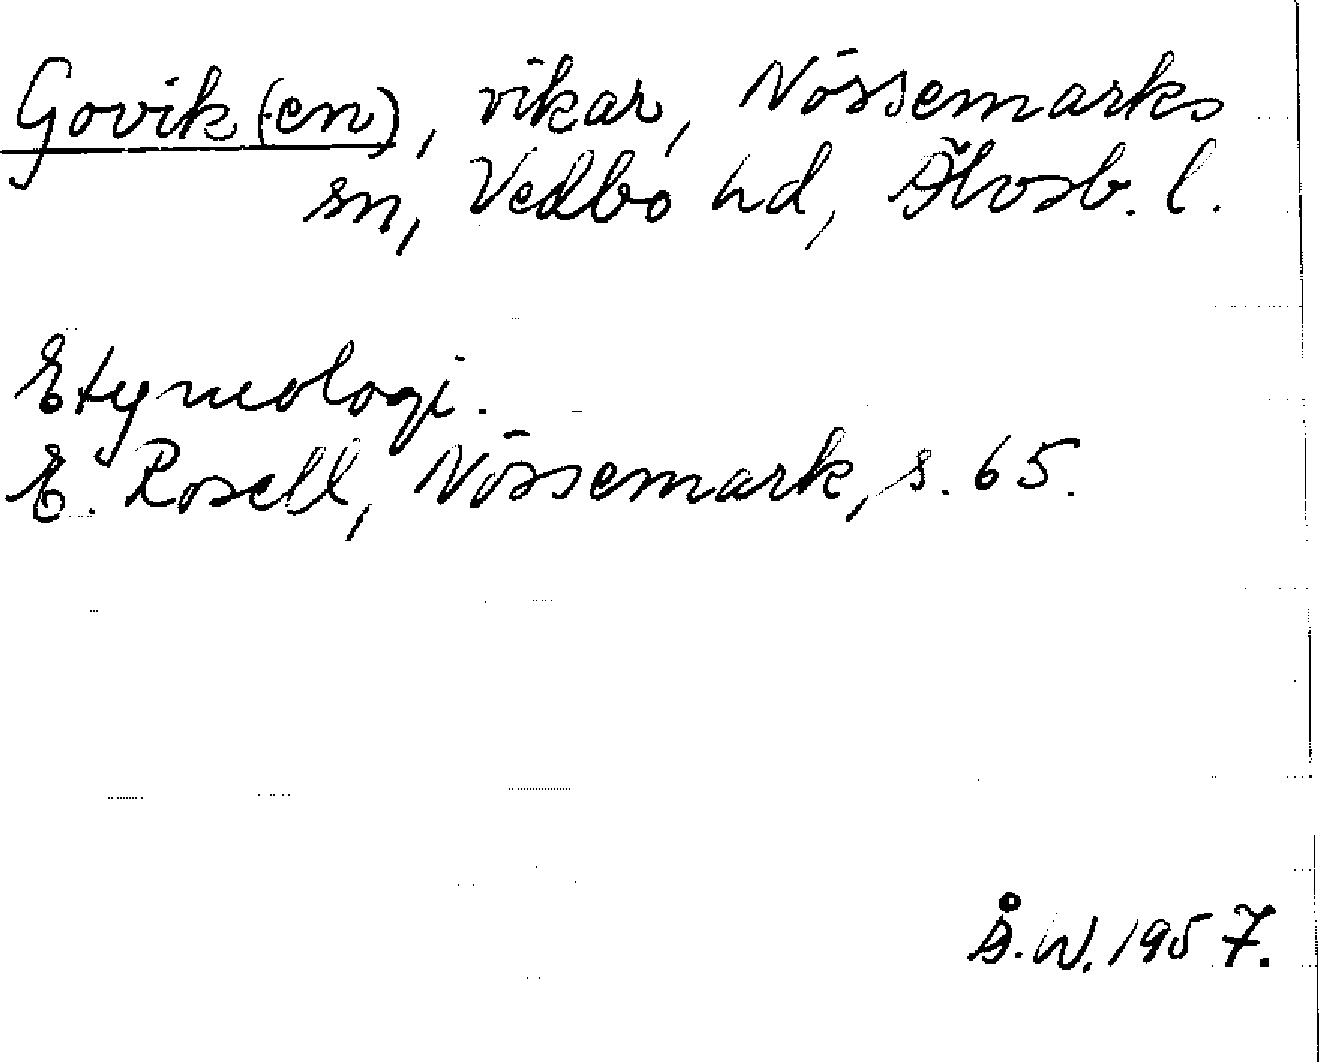 Govik(en), vikar, Nössemarks
sn, Vedbo hd, Älvsb. l.
Etymologi.
E. Rosell, Nössemark, s. 65.
Å. W. 1957.